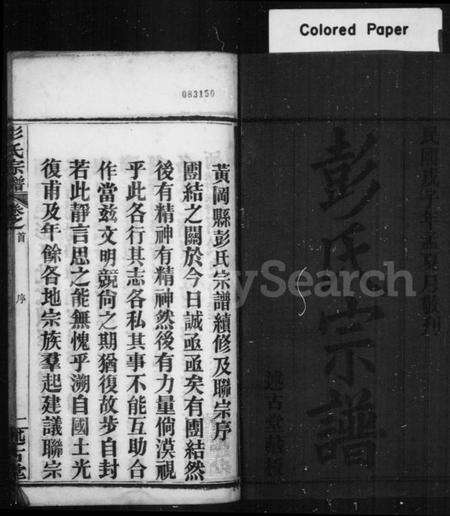 Colored Paper
彭氏宗譜
述古堂
083150
黃岡縣彭氏宗譜續修及聯宗序
團結之關於今日誠亟亟矣有團結然
後有精神有精神然後有力量倘漠視
乎此各行其志各私其事不能互助合
作當茲文明競尚之期猶復故步自封
若此靜言思之能無愧乎溯自國土光
復甫及年餘各地宗族羣起建議聯宗
彭氏宗譜
卷之首
序
一
述古堂
MySearch